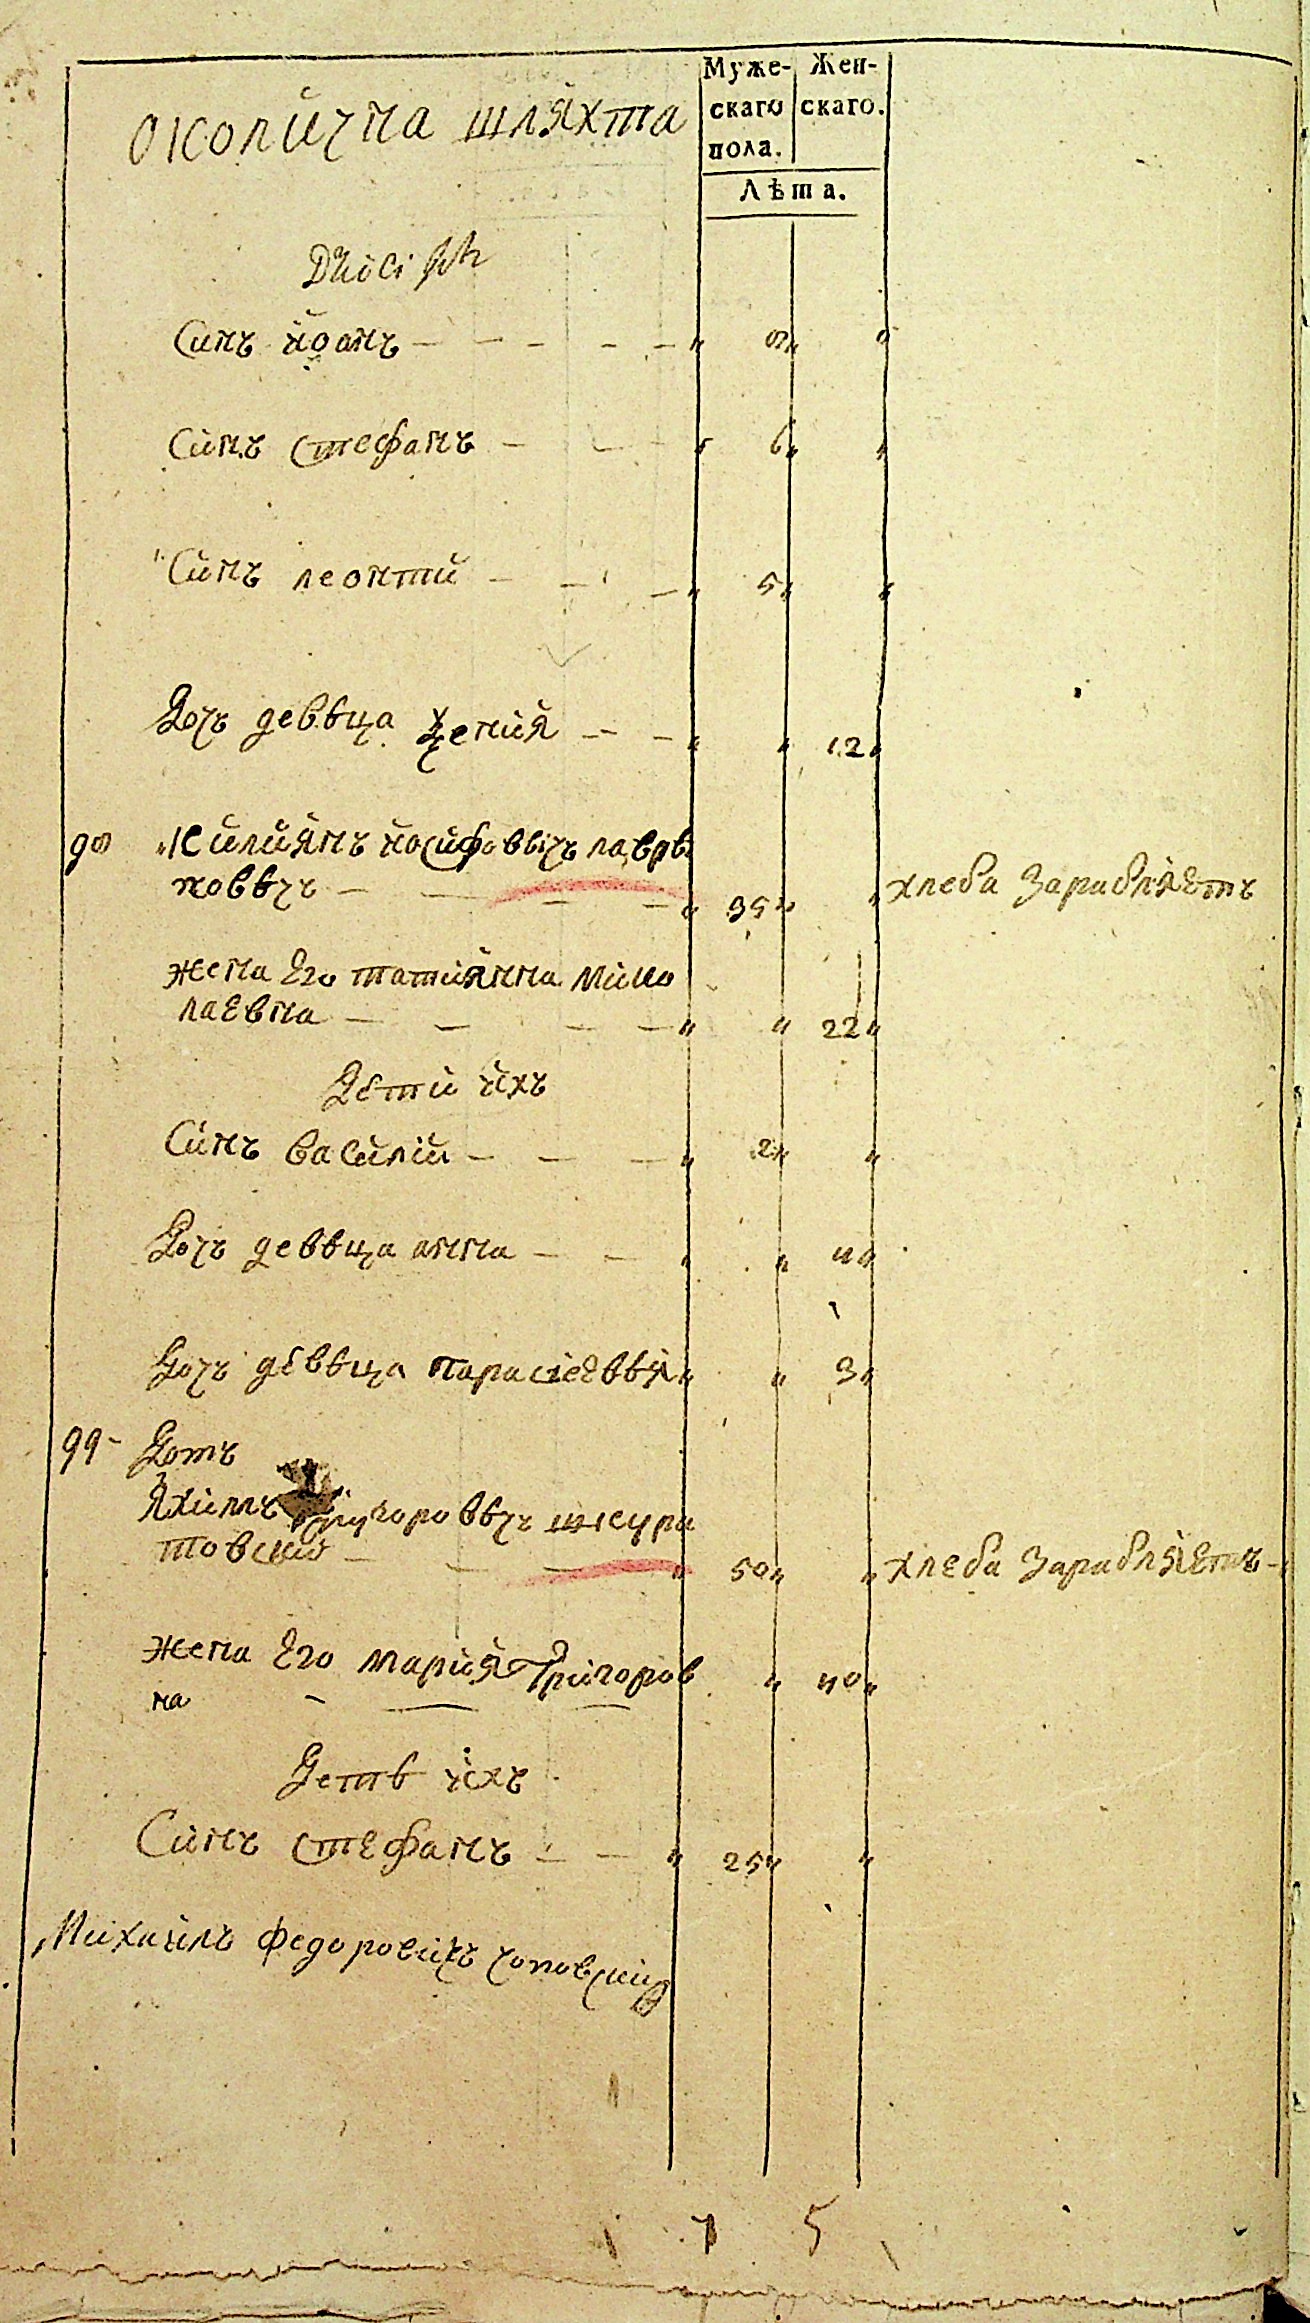 околична шляхта
Муже-
скаго
пола.
Жен-
скаго.
Лѣта.
Синъ йоанъ - - - - - „ 8„ „
Синъ Стефанъ - - - „ 6„ „
Синъ леонтий - - - „ 5„ „
Дочъ девѣца - - - „ „ 12„
98 „Килиянъ йосифовѣчъ лаврѣ
новѣчъ - - - - „ 35„ „ хлеба Зарабляетъ
жена Его татиянна Нико
лаевна - - - - „ „ 22„
Дети ихъ
Синъ василий - - - „ 2„ „
Дочъ девѣца анна - - „ „ 4„
Дочъ девѣца парасѣевѣя „ „ 3„
99- Дотъ
Якимъ шкура
товский - - - „ 50„ „ хлеба Зарабляетъ -
жена Его мария Григоров
на - - - „ 40„
Детѣ ихъ
Синъ Стефанъ - - „ 25„ „
Михаилъ федоровичъ
7 5